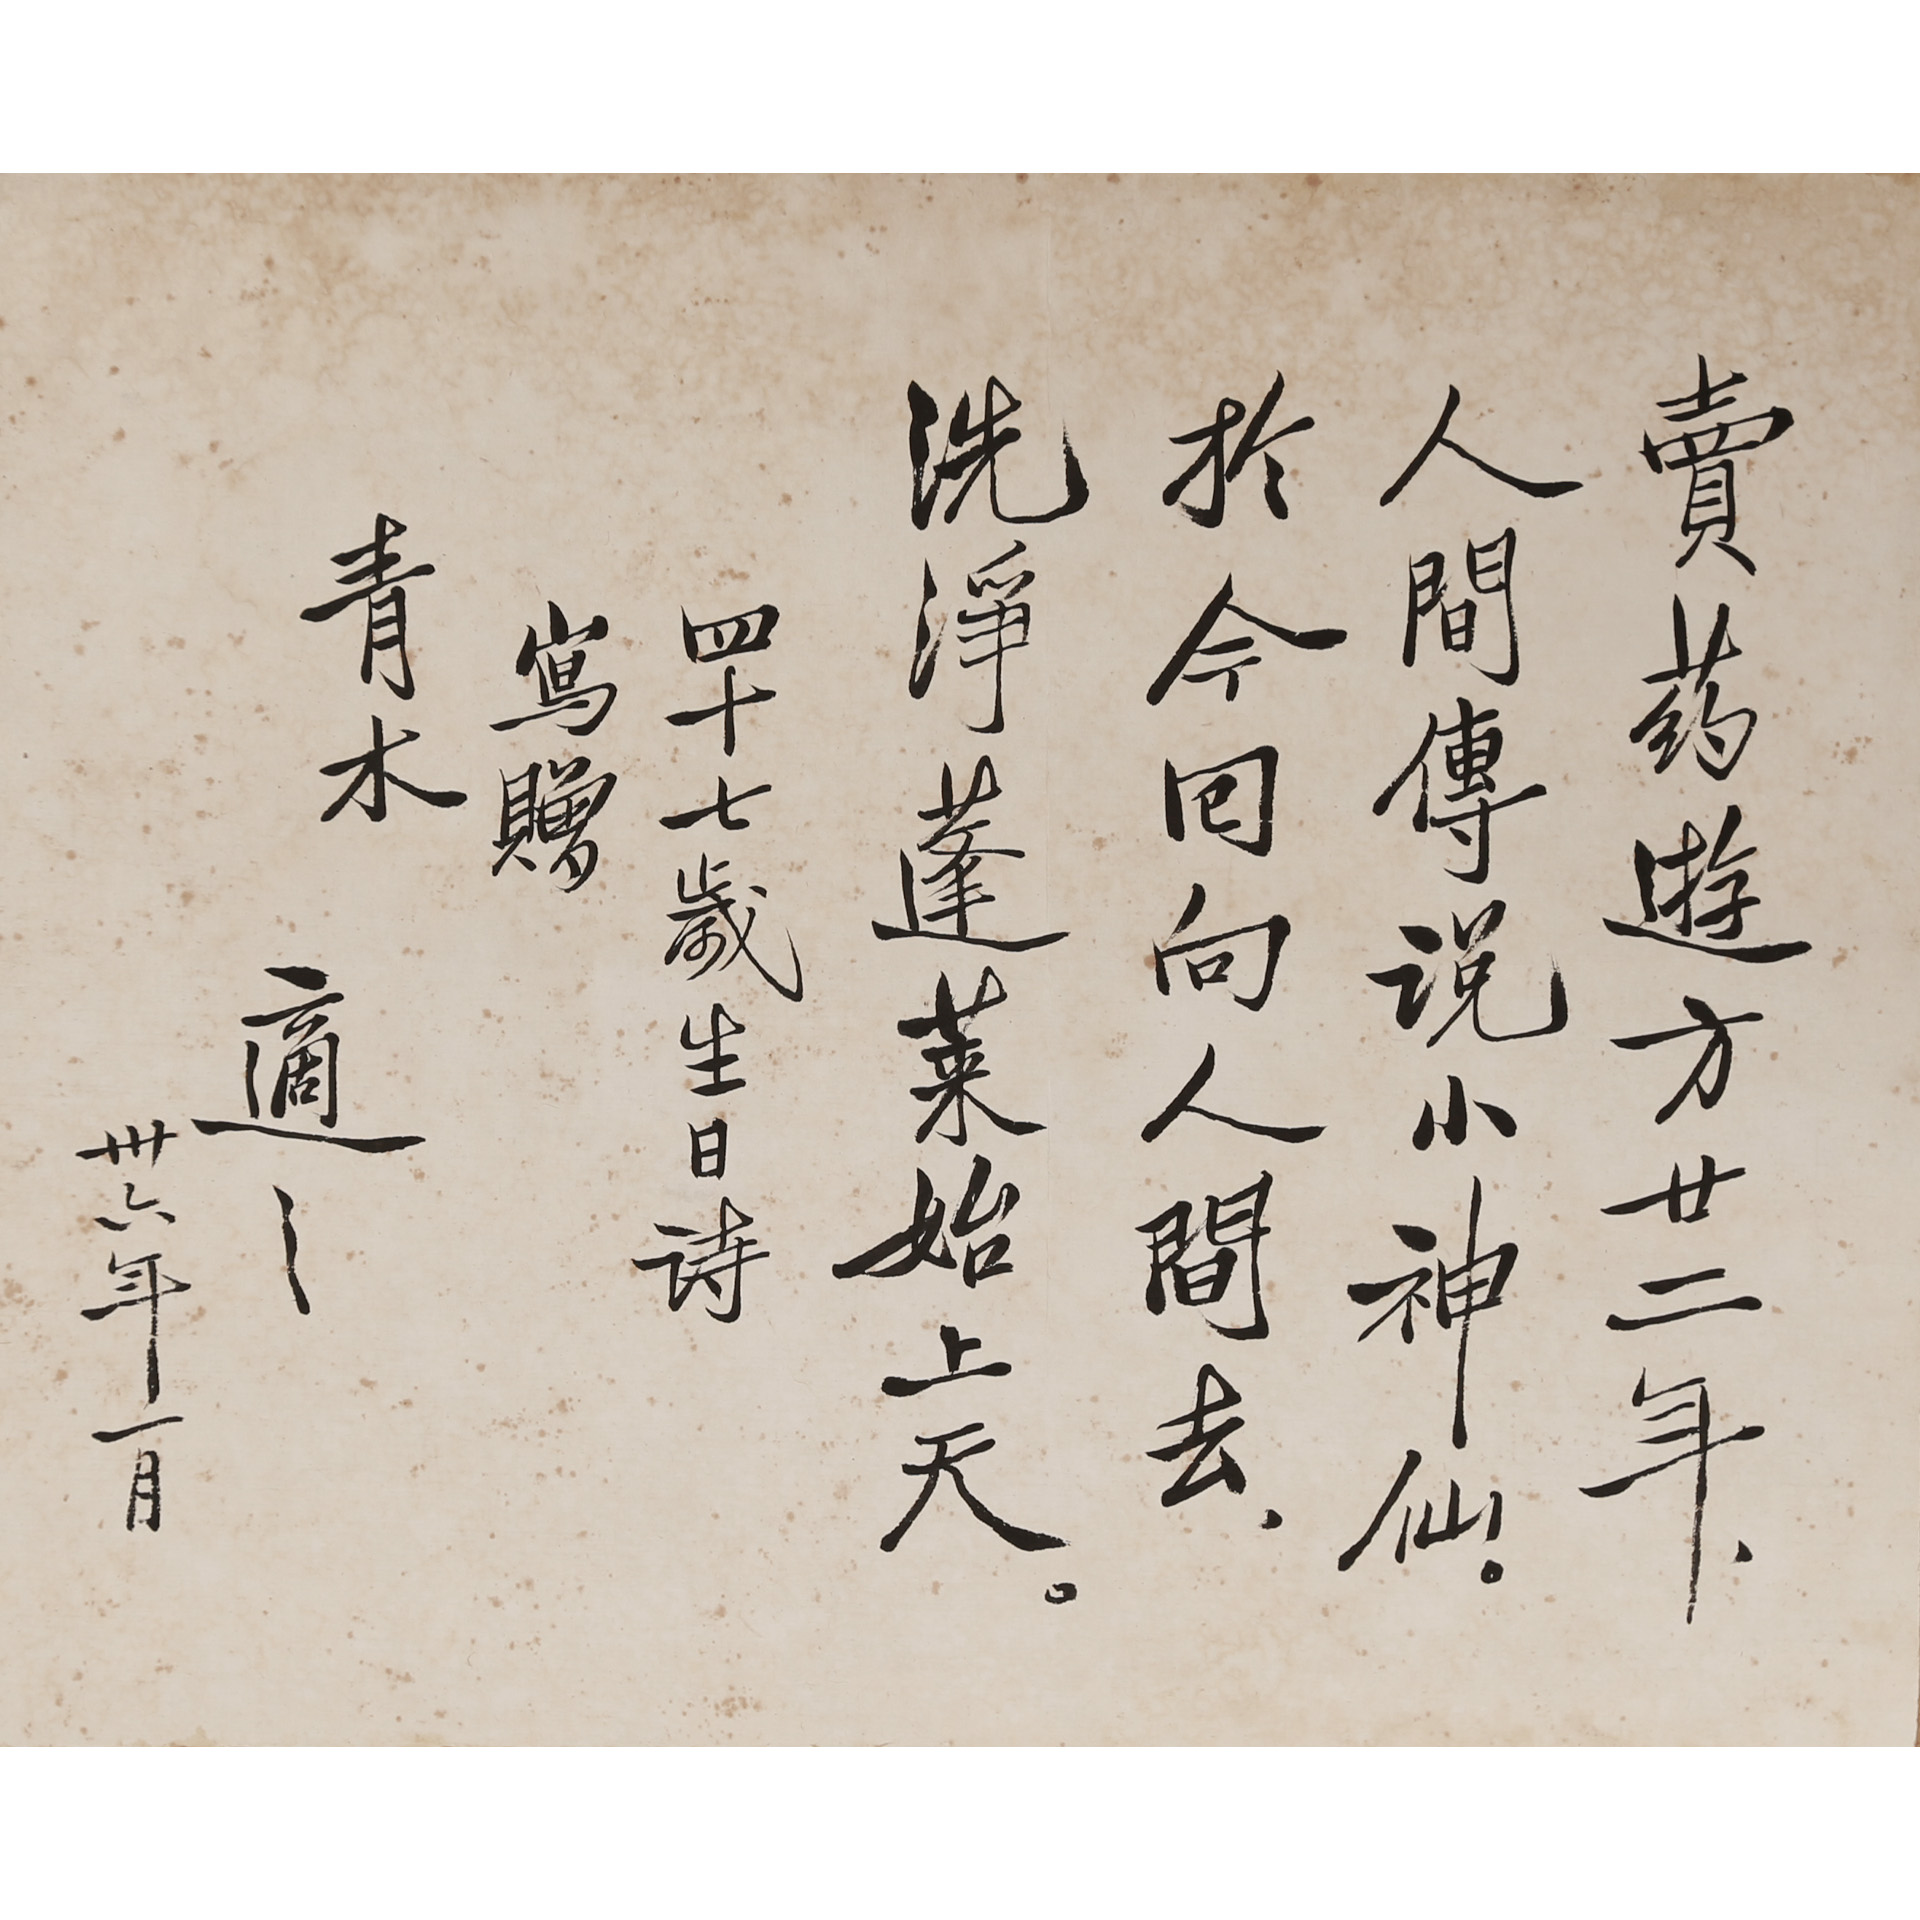 賣药遊方廿二年、
人間傳说小神仙。
於今回向人間去、
洗淨蓬萊始上天。
四十七歲生日诗
寫贈
青木
適之
卅六年一月